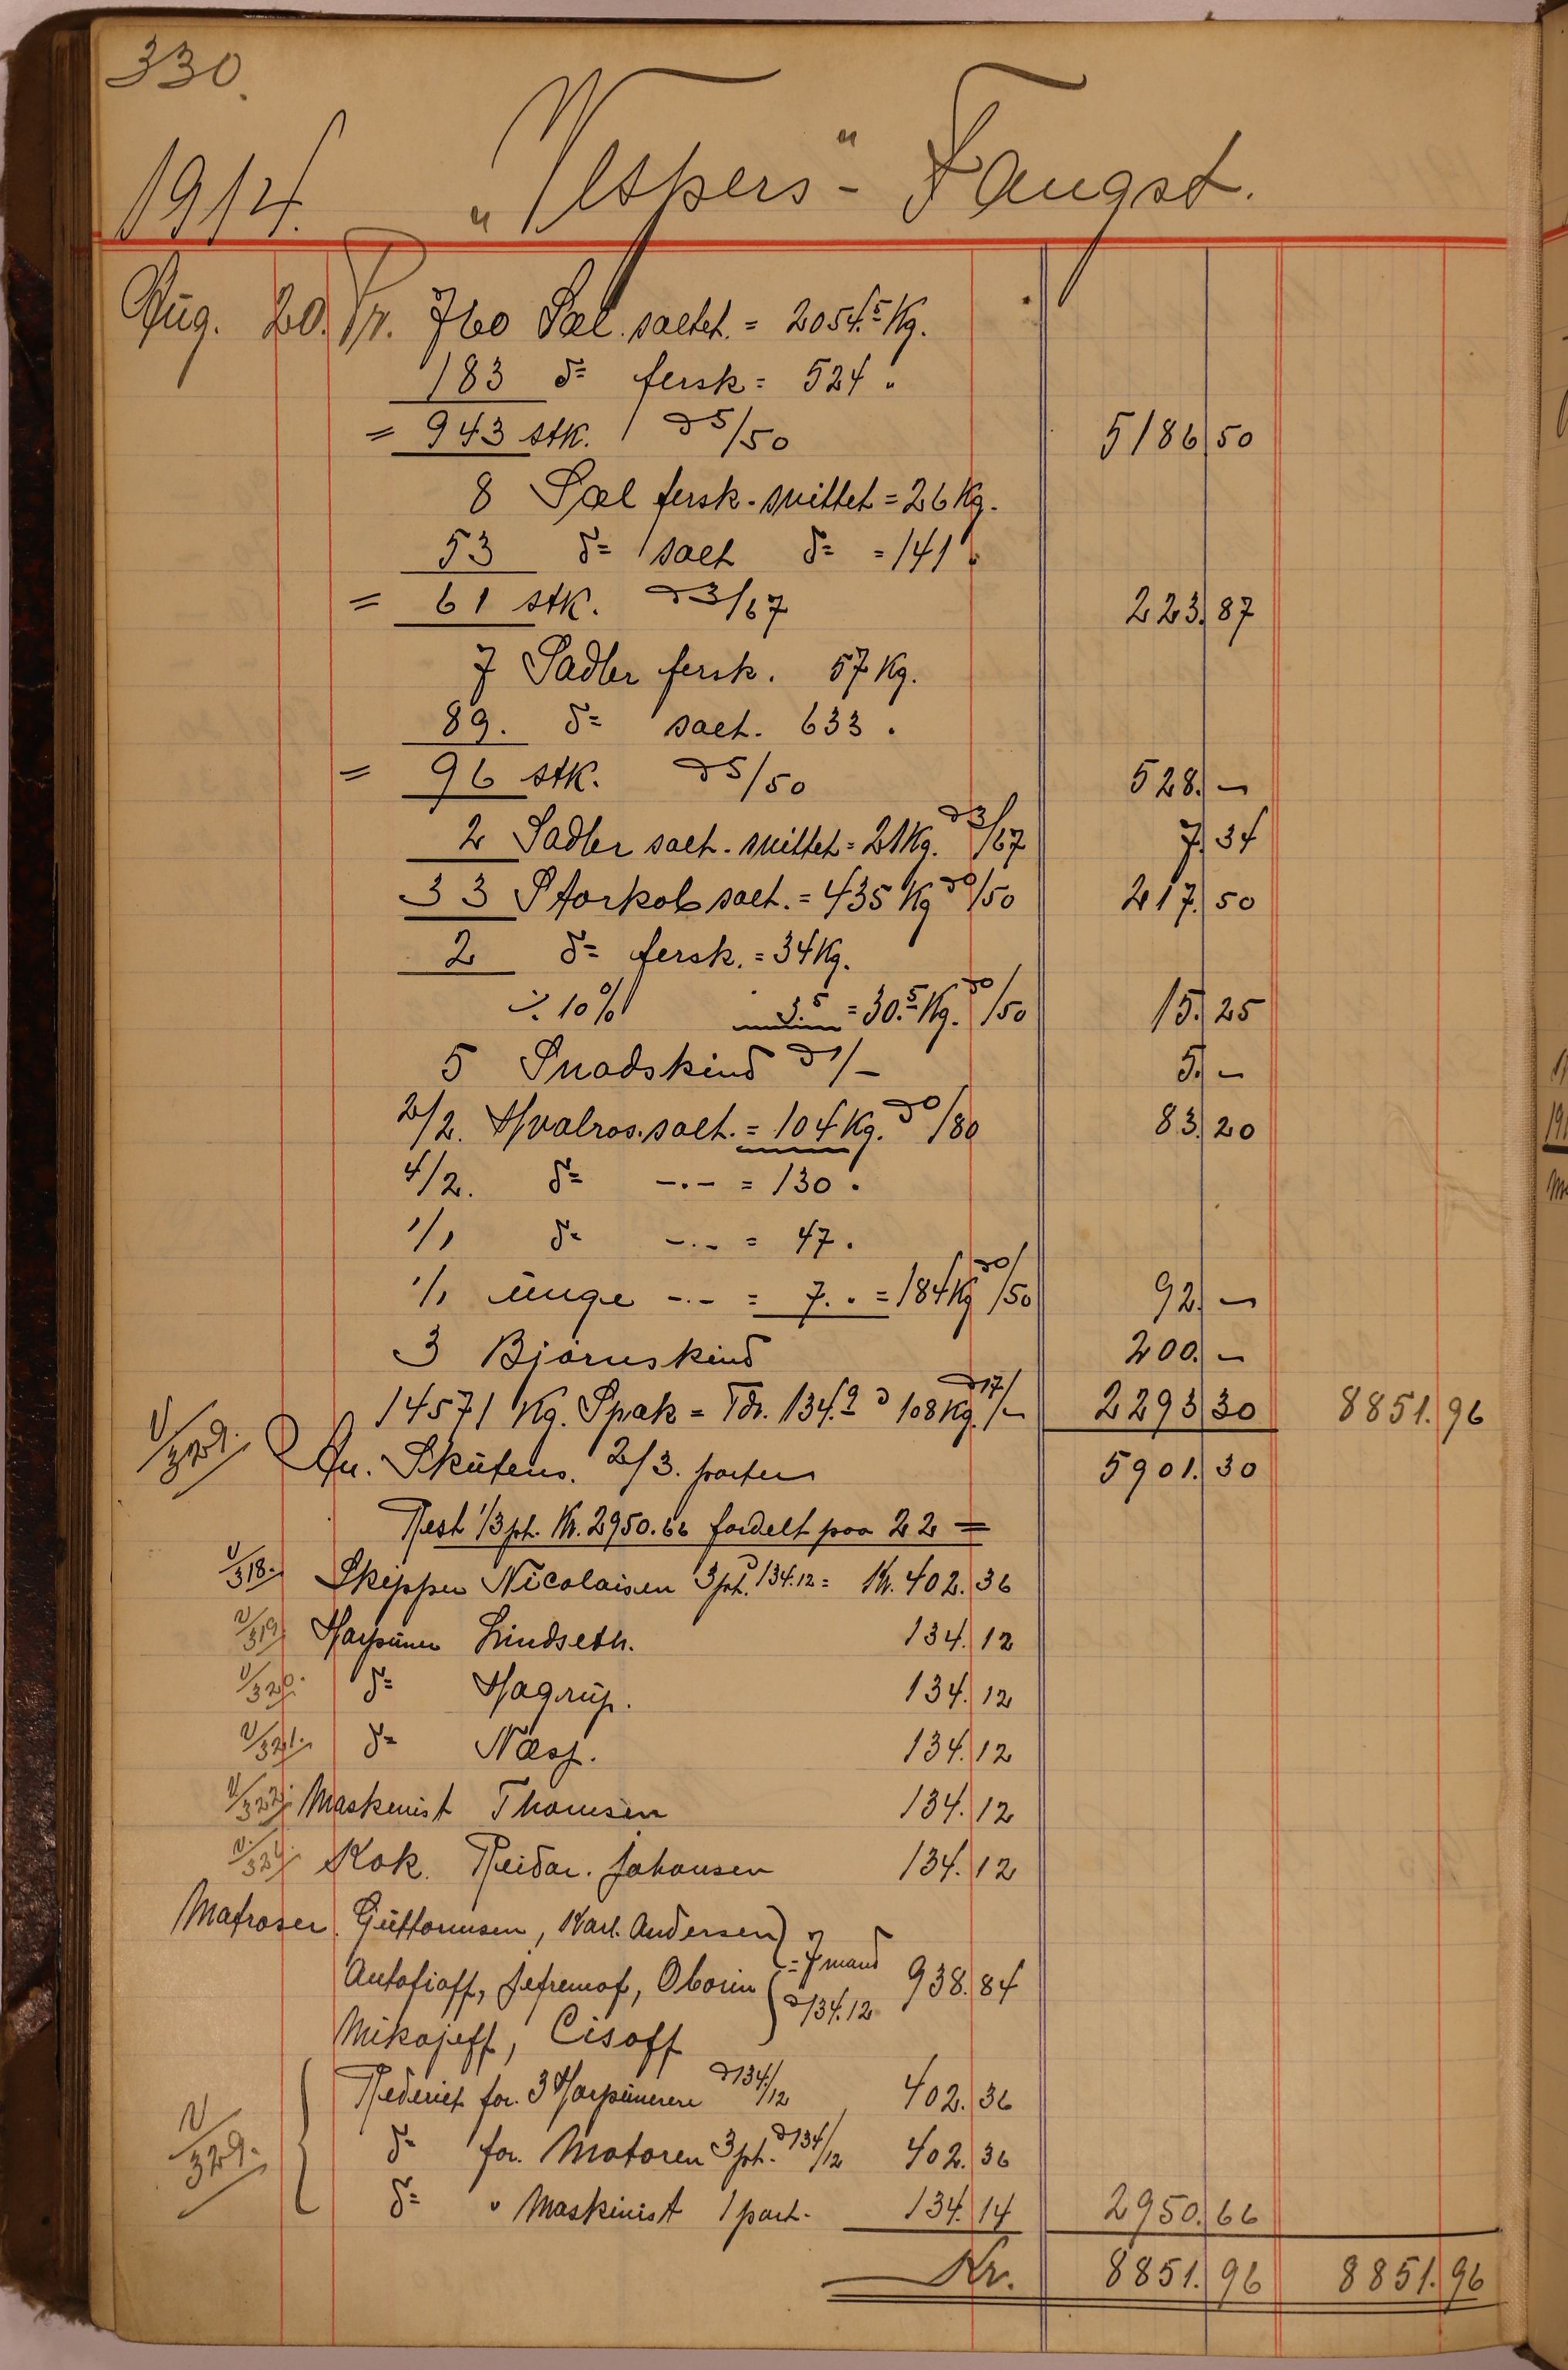 330.
1914. „Veskers"- Fangst.
Aug. 20. Pr. 760 Sæl. saltet. = 2054.5 Kg.
183 do fersk = 524 "
= 943 stk. à 5/50 5186 50
8 Sæl fersk. snittet = 26 Kg.
53 do salt do = 141 "
= 61 stk. à 3/67 223. 87
7 Sadler fersk. 57 Kg.
89. do salt. 633 .
= 96 stk. à 5/50 528. -
2 Sadler salt. snittet = 21 Kg. à 3/67 7. 34
33 Storkob salt. = 435 Kg à 0/50 217. 50
2 do fersk. = 34 Kg.
÷ 10% 3.5 = 30.5 Kg. à 0/50 15. 25
5 Snadskind à 1/- 5. -
2/2. Hvalros. salt. = 104 Kg. à 0/80 83. 20
4/2. do -.- = 130 .
1/1 do -.- = 47 .
1/1 unge -.- = 7. . = 184 Kg à 0/50 92. -
3 Bjørneskind 200. -
14571 Kg. Spæk = Tdr. 134.9 à 108 Kg. à 17/- 2293 30 8851. 96
V/329. An. Skutens. 2/3. parter 5901. 30
Rest 1/3 pt. Kr. 2950.66 fordelt paa 22 =
V/318. Skipper Nicolaisen 3 pt. à 134.12 = Kr. 402. 36
V/319 Harpuner Lindseth. 134. 12
V/320. do Hagrup. 134. 12
V/321. do Næss. 134. 12
V/322. Maskenist Thomsen 134. 12
V/324. Kok. Reidar. Johansen 134. 12
Matroser. Guttormsen, Karl. Andersen
Antofioff, Jefremof, Oborin = 7 mand à 134.12 938. 84
Mikajeff, Cisoff
Rederiet for. 3 Harpunerer à 134/12 402. 36
V/329. do for. Motoren 3 pt. à 134/12 402. 36
do " Maskinist 1 part. 134. 14 2950. 66
Kr. 8851. 96 8851. 96